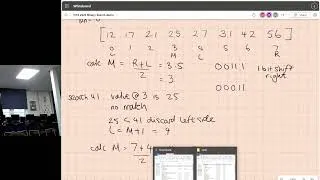 [ 12 17 21 25 27 31 42 56 ]
0 1 2 3 4 5 6 7
L M R
calc M = R+L / 2 = 3.5 00111 1 bit shift right
= 3 00011
search 41 value @ 3 is 25
no match
25 < 41 discard left side
L = M+1 = 4
calc M = 7+4 / 2